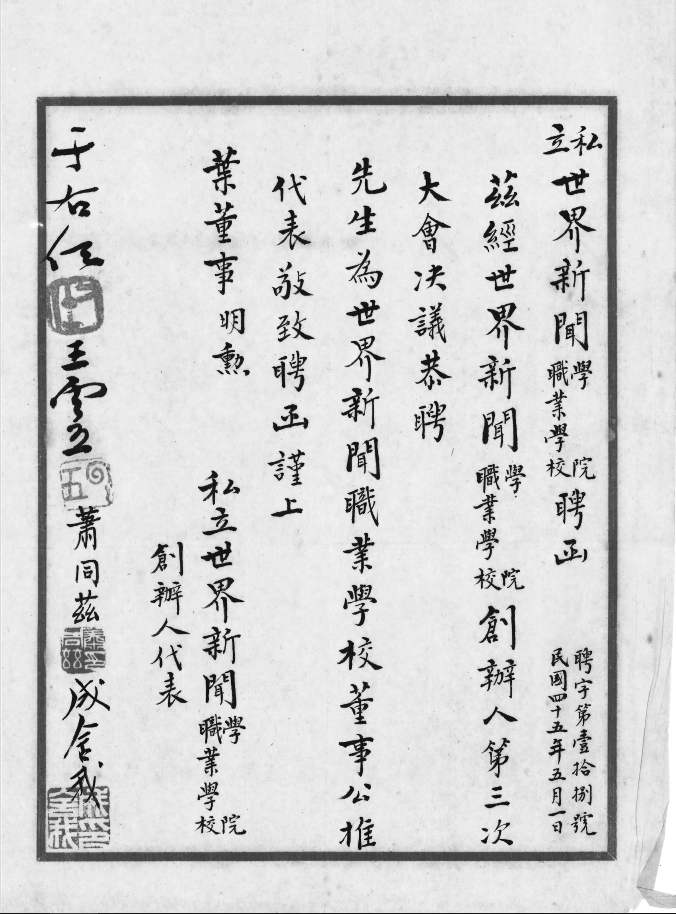 私立世界新聞學院職業學校聘函
聘字第壹拾捌號
民國四十五年五月一日
茲經世界新聞學院職業學校創辦人第三次
大會決議恭聘
先生為世界新聞職業學校董事公推
代表敬致聘函謹上
葉董事明勳
私立世界新聞學院職業學校
創辦人代表
于右任 王雲五 蕭同茲 成舍我